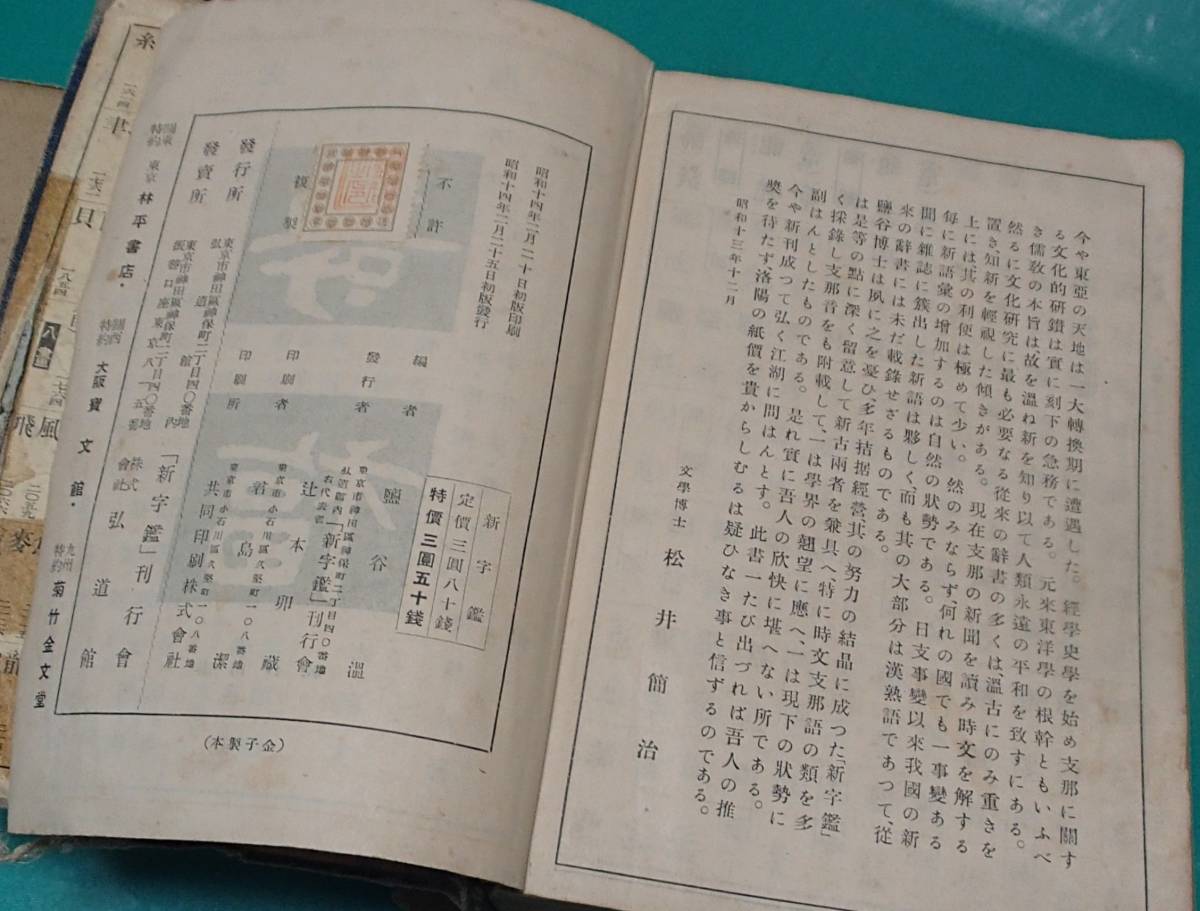 今や東亞の天地は一大轉換期に遭遇した。經學史學を始め支那に關す
る文化的硏鑽は實に刻下の急務である。元來東洋學の根幹ともいふべ
き儒敎の本旨は故を溫ね新を知り以て人類永遠の平和を致すにある。
然るに文化硏究に最も必要なる從來の辭書の多くは、溫古にのみ重きを
置き知新を輕視した傾きがある。現在支那の新聞を讀み時文を解する
上には其の利便は極めて少い。然のみならず、何れの國でも一事變ある
每に新語彙の增加するのは自然の狀勢である。日支事變以來我國の新
聞に雜誌に簇出した新語は夥しく、而も其の大部分は漢熟語であつて、從
來の辭書には未だ載錄せざるものである。
鹽谷博士は夙に之を憂ひ、多年拮据經營其の努力の結晶に成つた「新字鑑」
は是等の點に深く留意して新古兩者を兼具へ、特に時文支那語の類を多
く採錄し支那音をも附載して、一は學界の翹望に應へ、一は現下の狀勢に
副はんとしたものである。是れ實に吾人の欣快に堪へない所である。
今や新刊成つて弘く江湖に問はんとす。此書一たび出づれば吾人の推
奬を待たず洛陽の紙價を貴からしむるは疑ひなき事と信ずるのである。
昭和十三年十二月
文學博士 松井簡治
昭和十四年二月二十日初版印刷
昭和十四年二月二十五日初版發行
不許
複製
新字鑑
定價三圓八十錢
特價三圓五十錢
編者 鹽谷溫
發行者 東京市神田區神保町二丁目四〇番地
弘道館內「新字鑑」刊行會
右代表者 辻本卯藏
印刷者 東京市小石川區久堅町一〇八番地
君島潔
印刷所 東京市小石川區久堅町一〇八番地
共同印刷株式會社
發行所 東京市神田區神保町二丁目四〇番地
弘道館內 「新字鑑」刊行會
發賣所 東京市神田區神保町二丁目四〇番地
株式會社 弘道館
關東特約 東京 林平書店・
關西特約 大阪寶文館・
九州特約 菊竹金文堂
(金子製本)
糸
貝
一八五四
八畫
風
飛
麥